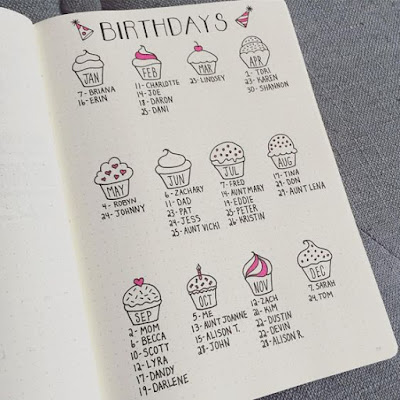 BIRTHDAYS
JAN
7- BRIANA
16- ERIN
FEB
11- CHARLOTTE
14- JOE
18- DARON
25- DANI
MAR
25- LINDSEY
APR
2- TORI
23- KAREN
30- SHANNON
MAY
4- ROBYN
24- JOHNNY
JUN
6- ZACHARY
11- DAD
23- PAT
24- JESS
25- AUNT VICKI
JUL
7- FRED
14- AUNT MARY
19- EDDIE
25- PETER
26- KRISTIN
AUG
17- TINA
29- DON
29- AUNT LENA
SEP
2- MOM
6- BECCA
10- SCOTT
12- LYRA
17- DANDY
19- DARLENE
OCT
5- ME
13- AUNT JOANNE
15- ALISON T.
28- JOHN
NOV
12- ZACH
21- KIM
22- DUSTIN
22- DEVIN
28- ALISON R.
DEC
7- SARAH
24- TOM